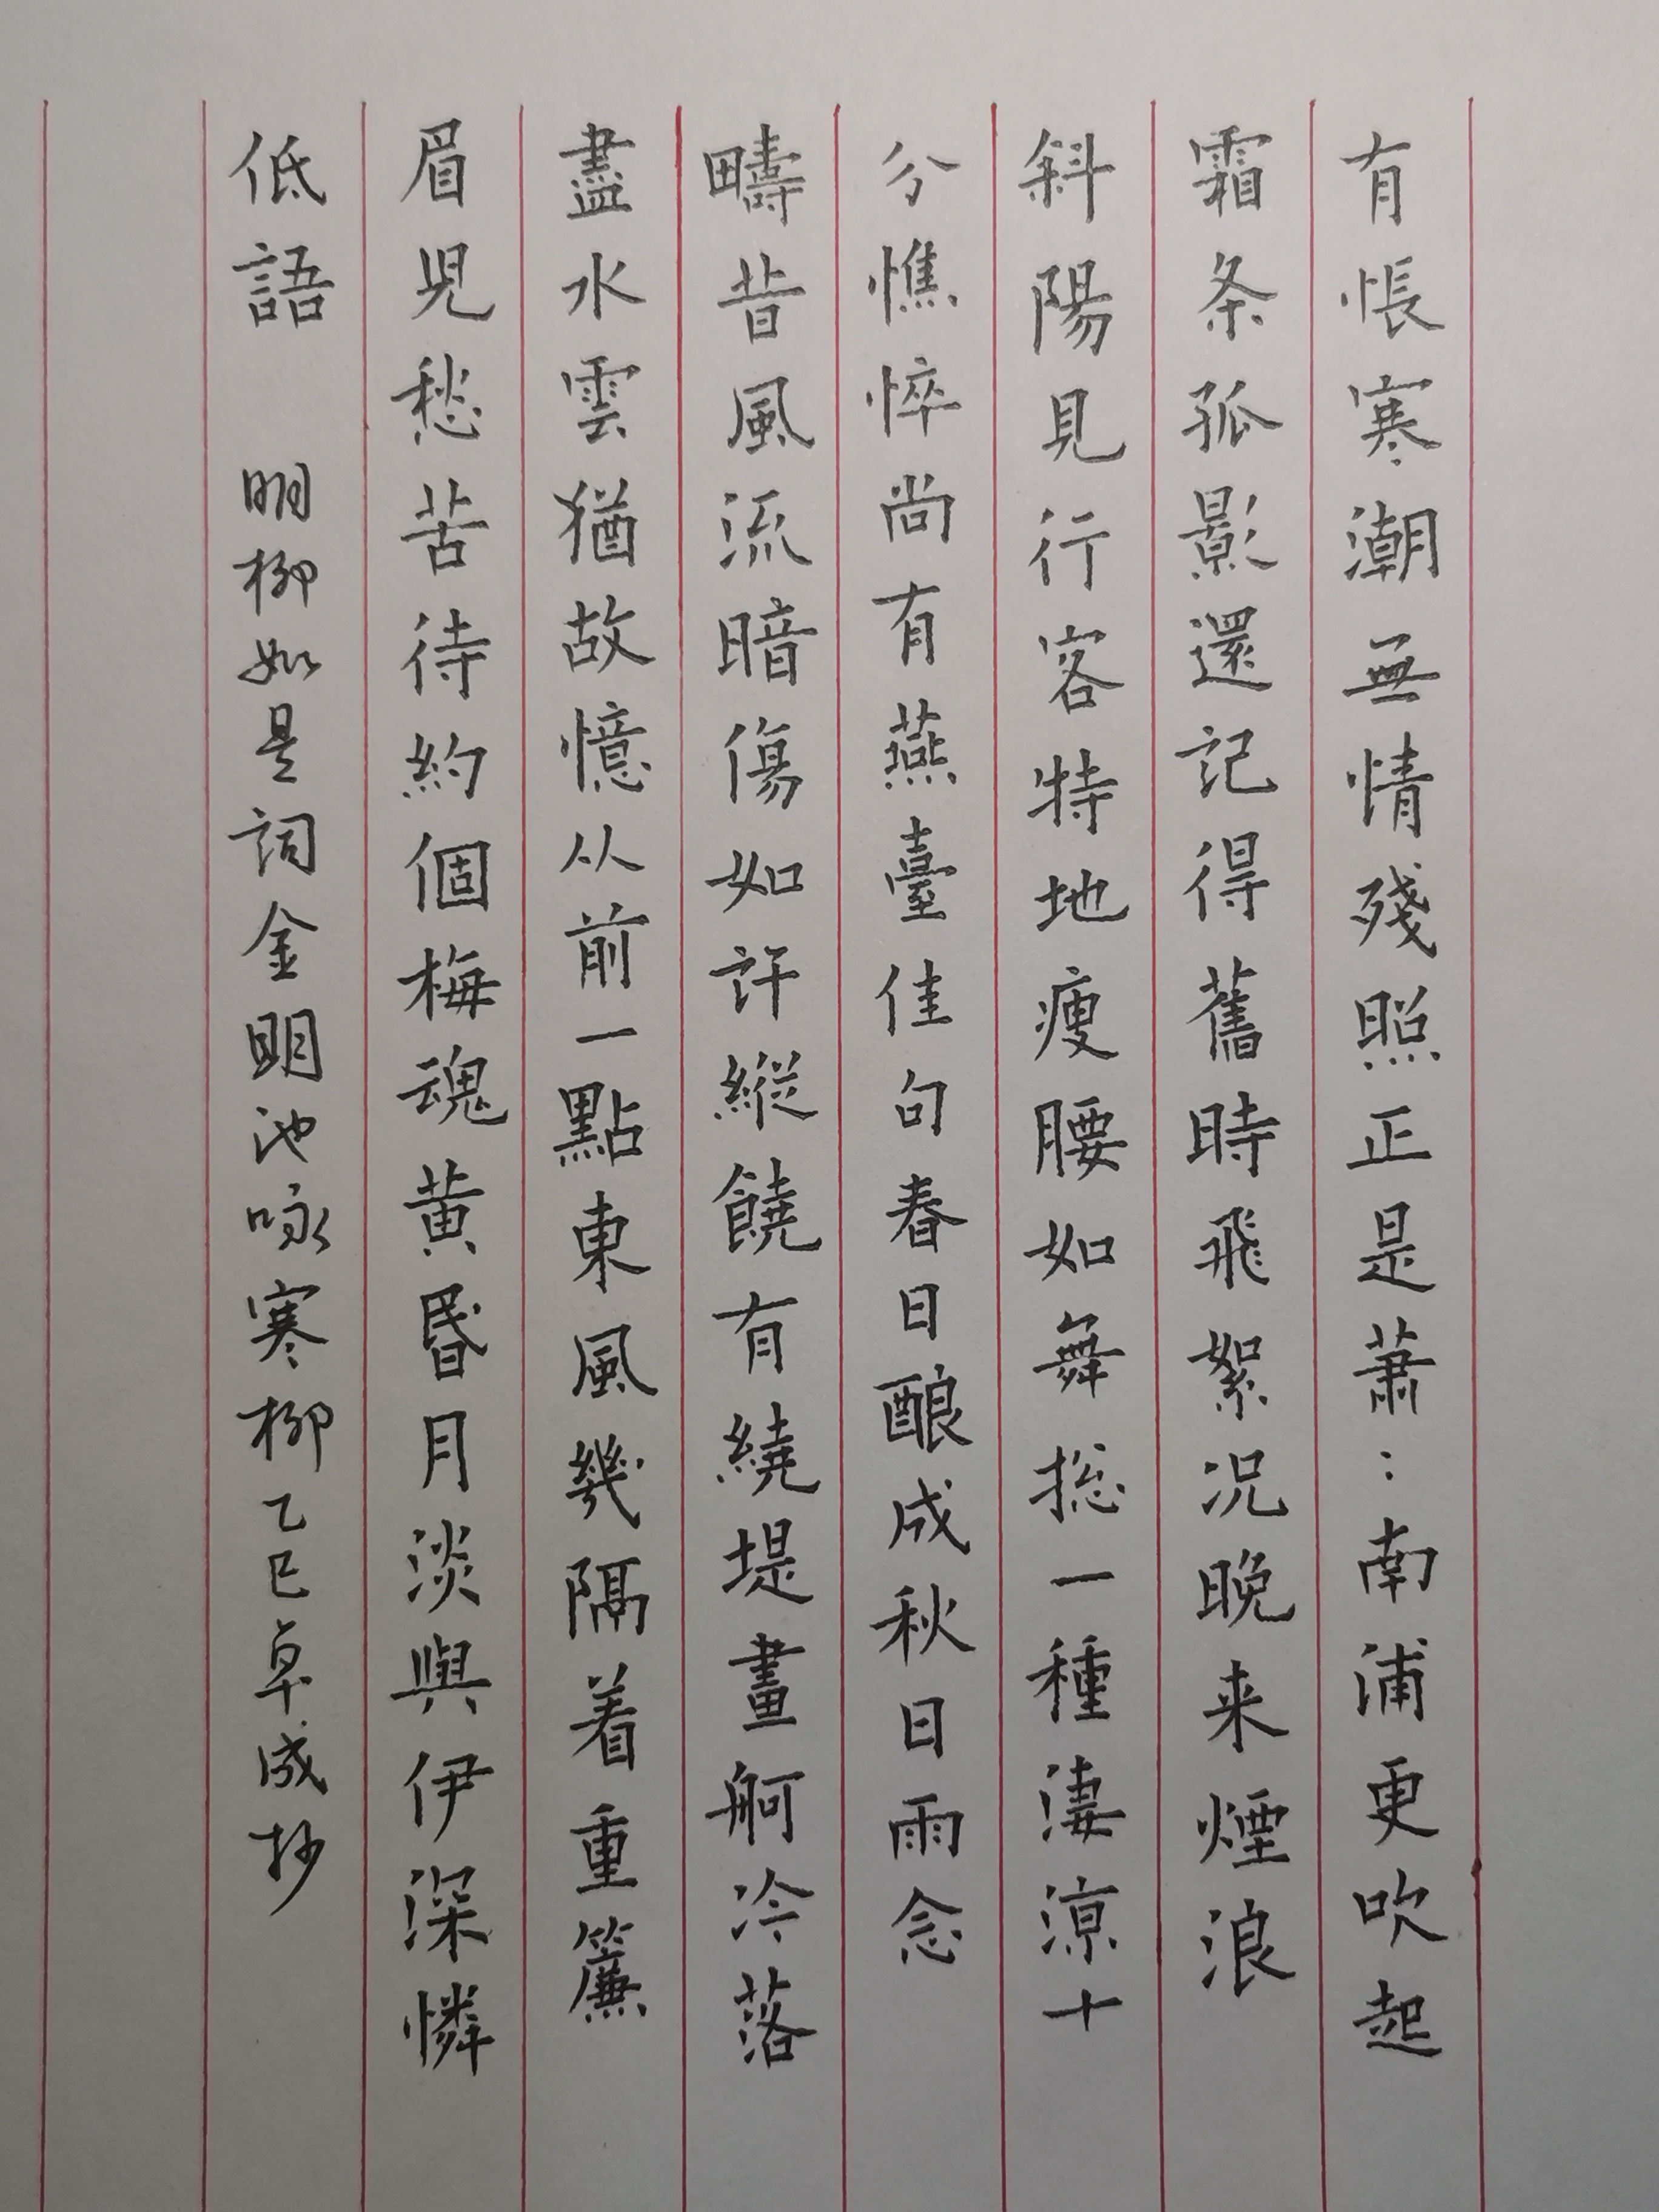 有悵寒潮無情殘照正是蕭:南浦更吹起
霜条孤影還記得舊時飛絮况晚来煙浪
斜陽見行客特地瘦腰如舞揔一種淒涼十
分憔悴尚有燕臺佳句春日酿成秋日雨念
疇昔風流暗傷如許縱饒有繞堤畫舸冷落
盡水雲猶故憶从前一點東風幾隔着重簾
眉兒愁苦待約個梅魂黄昬月淡與伊深憐
低語 明柳如是詞金明池咏寒柳乙巳卓成抄